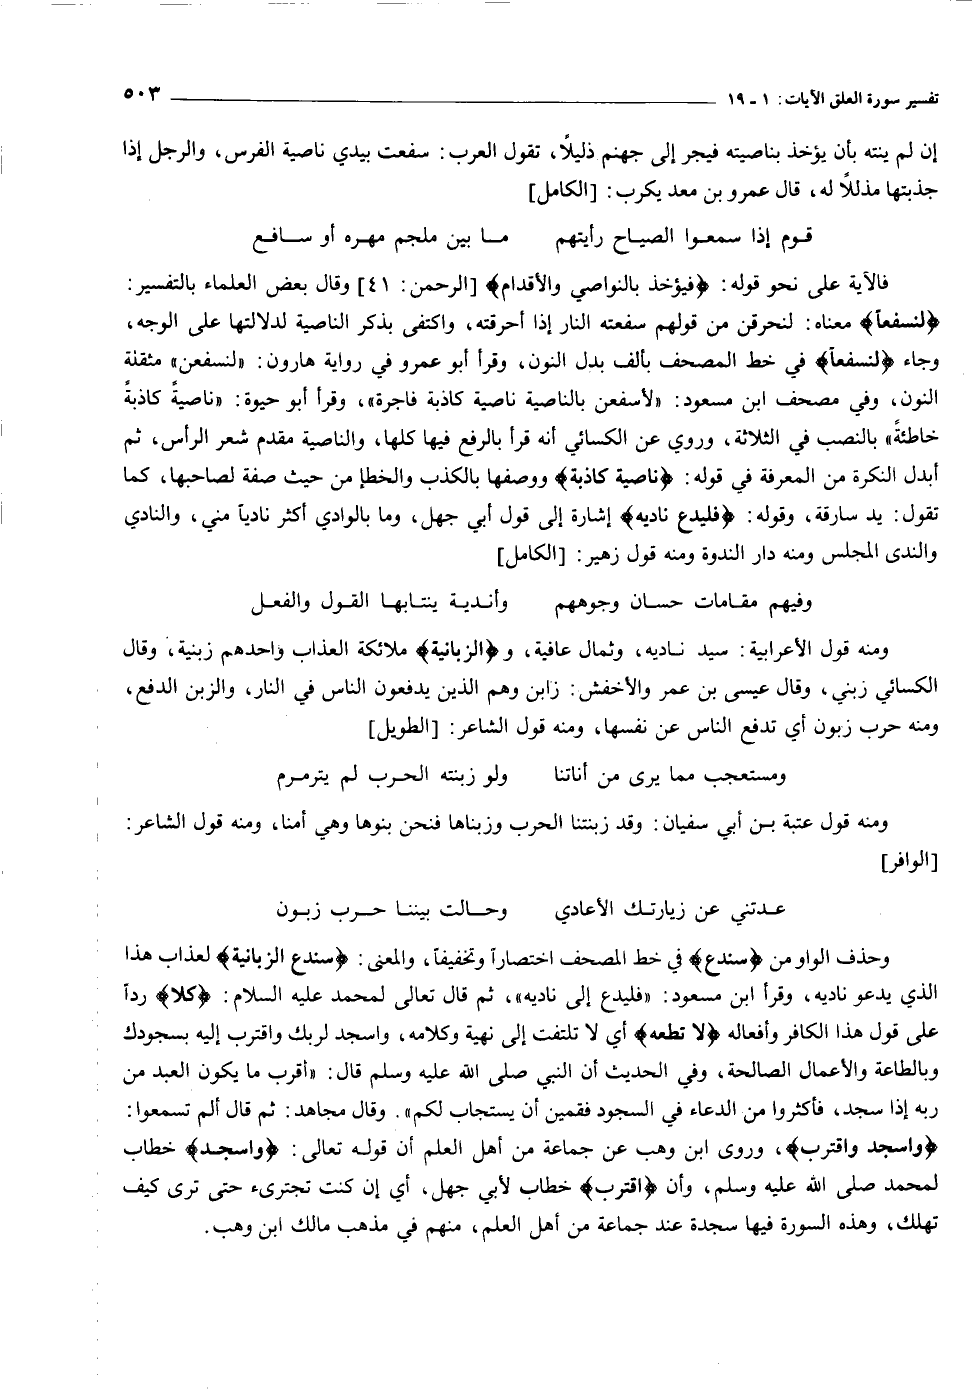 تفسير سورة العلق الآيات: ١ ـ ١٩ ٥٠٣
إن لم ينته بأن يؤخذ بناصيته فيجر إلى جهنم ذليلاً، تقول العرب: سفعت بيدي ناصية الفرس، والرجل إذا
جذبتها مذللاً له، قال عمرو بن معد يكرب: [الكامل]
قوم إذا سمعوا الصياح رأيتهم ما بين ملجم مهره أو سافع
فالآية على نحو قوله: ﴿فيؤخذ بالنواصي والأقدام﴾ [الرحمن: ٤١] وقال بعض العلماء بالتفسير:
﴿لنسفعاً﴾ معناه: لنحرقن من قولهم سفعته النار إذا أحرقته، واكتفى بذكر الناصية لدلالتها على الوجه،
وجاء ﴿لنسفعاً﴾ في خط المصحف بألف بدل النون، وقرأ أبو عمرو في رواية هارون: «لنسفعن» مثقلة
النون، وفي مصحف ابن مسعود: «لأسفعن بالناصية ناصية كاذبة فاجرة»، وقرأ أبو حيوة: «ناصيةً كاذبةً
خاطئةً» بالنصب في الثلاثة، وروي عن الكسائي أنه قرأ بالرفع فيها كلها، والناصية مقدم شعر الرأس، ثم
أبدل النكرة من المعرفة في قوله: ﴿ناصية كاذبة﴾ ووصفها بالكذب والخطإ من حيث صفة لصاحبها، كما
تقول: يد سارقة، وقوله: ﴿فليدع ناديه﴾ إشارة إلى قول أبي جهل، وما بالوادي أكثر نادياً مني، والنادي
والندى المجلس ومنه دار الندوة ومنه قول زهير: [الكامل]
وفيهم مقامات حسان وجوههم وأندية ينتابها القول والفعل
ومنه قول الأعرابية: سيد ناديه، وثمال عافية، و﴿الزبانية﴾ ملائكة العذاب واحدهم زبنية، وقال
الكسائي زبني، وقال عيسى بن عمر والأخفش: زابن وهم الذين يدفعون الناس في النار، والزبن الدفع،
ومنه حرب زبون أي تدفع الناس عن نفسها، ومنه قول الشاعر: [الطويل]
ومستعجب مما يرى من أناتنا ولو زبنته الحرب لم يترمرم
ومنه قول عتبة بن أبي سفيان: وقد زبنتنا الحرب وزبناها فنحن بنوها وهي أمنا، ومنه قول الشاعر:
[الوافر]
عدتني عن زيارتك الأعادي وحالت بيننا حرب زبون
وحذف الواو من ﴿سندع﴾ في خط المصحف اختصاراً وتخفيفاً، والمعنى: ﴿سندع الزبانية﴾ لعذاب هذا
الذي يدعو ناديه، وقرأ ابن مسعود: «فليدع إلى ناديه»، ثم قال تعالى لمحمد عليه السلام: ﴿كلا﴾ رداً
على قول هذا الكافر وأفعاله ﴿لا تطعه﴾ أي لا تلتفت إلى نهية وكلامه، واسجد لربك واقترب إليه بسجودك
وبالطاعة والأعمال الصالحة، وفي الحديث أن النبي صلى الله عليه وسلم قال: «أقرب ما يكون العبد من
ربه إذا سجد، فأكثروا من الدعاء في السجود فقمين أن يستجاب لكم». وقال مجاهد: ثم قال ألم تسمعوا:
﴿واسجد واقترب﴾، وروى ابن وهب عن جماعة من أهل العلم أن قوله تعالى: ﴿واسجد﴾ خطاب
لمحمد صلى الله عليه وسلم، وأن ﴿اقترب﴾ خطاب لأبي جهل، أي إن كنت تجترىء حتى ترى كيف
تهلك، وهذه السورة فيها سجدة عند جماعة من أهل العلم، منهم في مذهب مالك ابن وهب.